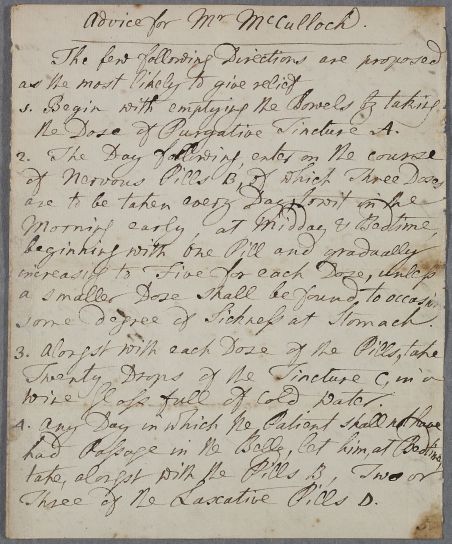 Advice for Mr McCulloch.
The few following Directions are proposed
as the most likely to give relief
1. Begin with emptying the Bowels by taking
the Dose of Purgative Tincture A.
2. The Day following, enter on the course
of Nervous Pills B, of which Three Doses
are to be taken every Day, towit in the
Morning early, at Midday & Bedtime,
beginning with one Pill and gradually
increasing to Five for each Dose, unless
a smaller Dose shall be found to occasion
some degree of Sickness at Stomach.
3. Alongst with each Dose of the Pills, take
Twenty Drops of the Tincture C, in a
wine Glass full of cold water.
4. Any Day in which the Patient shall not have
had Passage in the Belly, let him, at Bedtime,
take, alongst with the Pills B, Two or
Three of the Laxative Pills D.
5